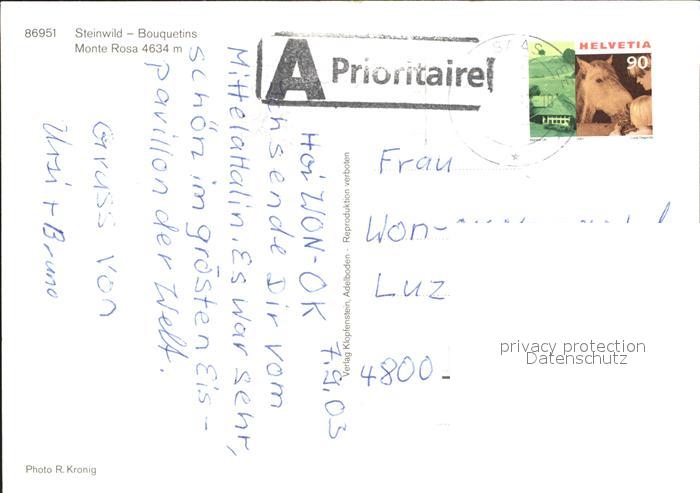 86951 Steinwild – Bouquetins
Monte Rosa 4634 m
A Prioritaire!
SAAS
HELVETIA
90
7.9.03
Hoi WON-OK
Ich sende Dir vom
Mittelallalin. Es war sehr,
schön im grösten Eis-
pavillon der Welt.
Gruss von
Ursi + Bruno
Verlag Klopfenstein, Adelboden - Reproduktion verboten
Frau
Won-
Luz
4800
privacy protection
Datenschutz
Photo R. Kronig